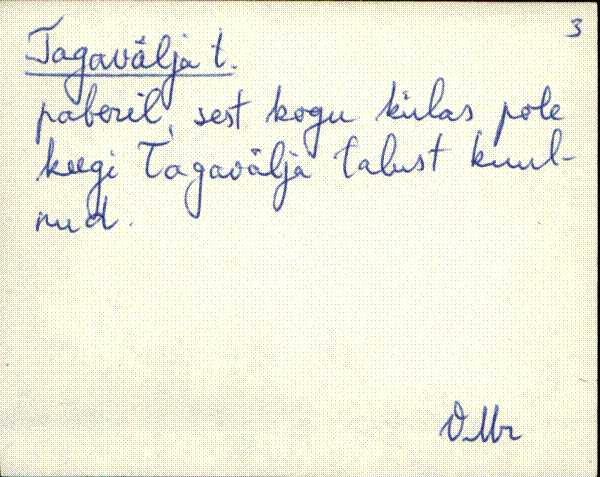 3
Tagavälja t.
paberil, sest kogu külas pole
keegi Tagavälja talust kuul-
nud.